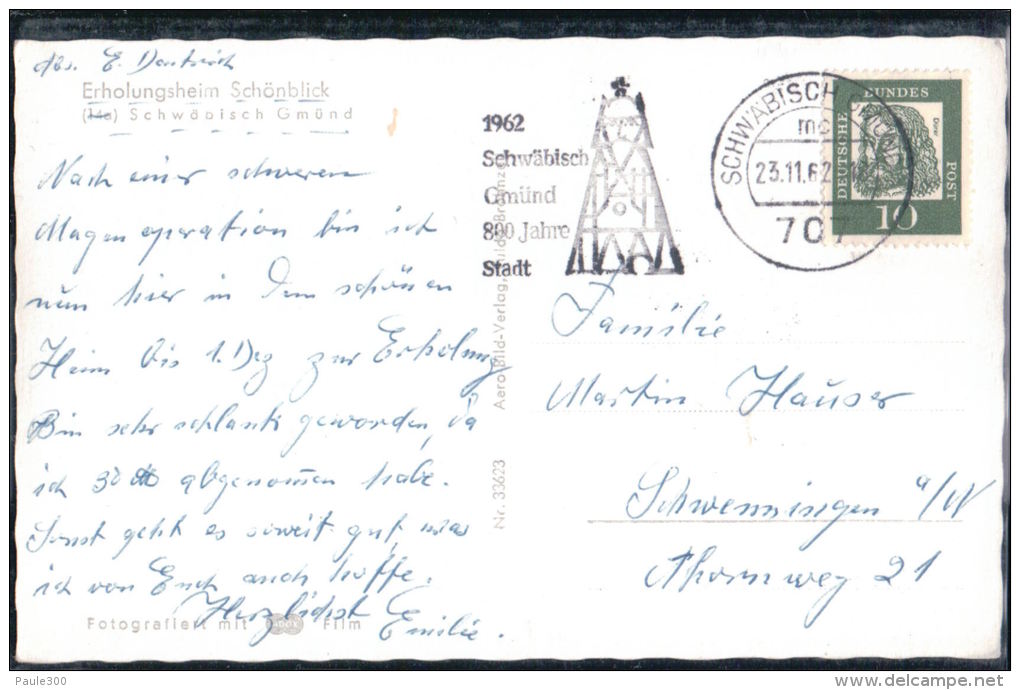 Abs. E. Dentrich
Erholungsheim Schönblick
(14a) Schwäbisch Gmünd
Nach einer schweren
Magenoperation bin ich
nun hier in dem schönen
Heim bis 1. Dez zur Erholung
Bin sehr schlank geworden, da
ich 30 ℔ abgenommen habe.
Sonst geht es soweit gut, was
ich von Euch auch hoffe.
Herzlichst Emilie.
Fotografiert mit ADOX Film
Nr. 33623
Aero-Bild-Verlag,
1962
Schwäbisch
Gmünd
800 Jahre
Stadt
SCHWÄBISCH GMÜND
mc
23.11.62
707
DEUTSCHE
BUNDES
POST
Dürer
10
Familie
Martin Hauser
Schwenningen a/N
Thornweg 21
Paule300
delcampe.net